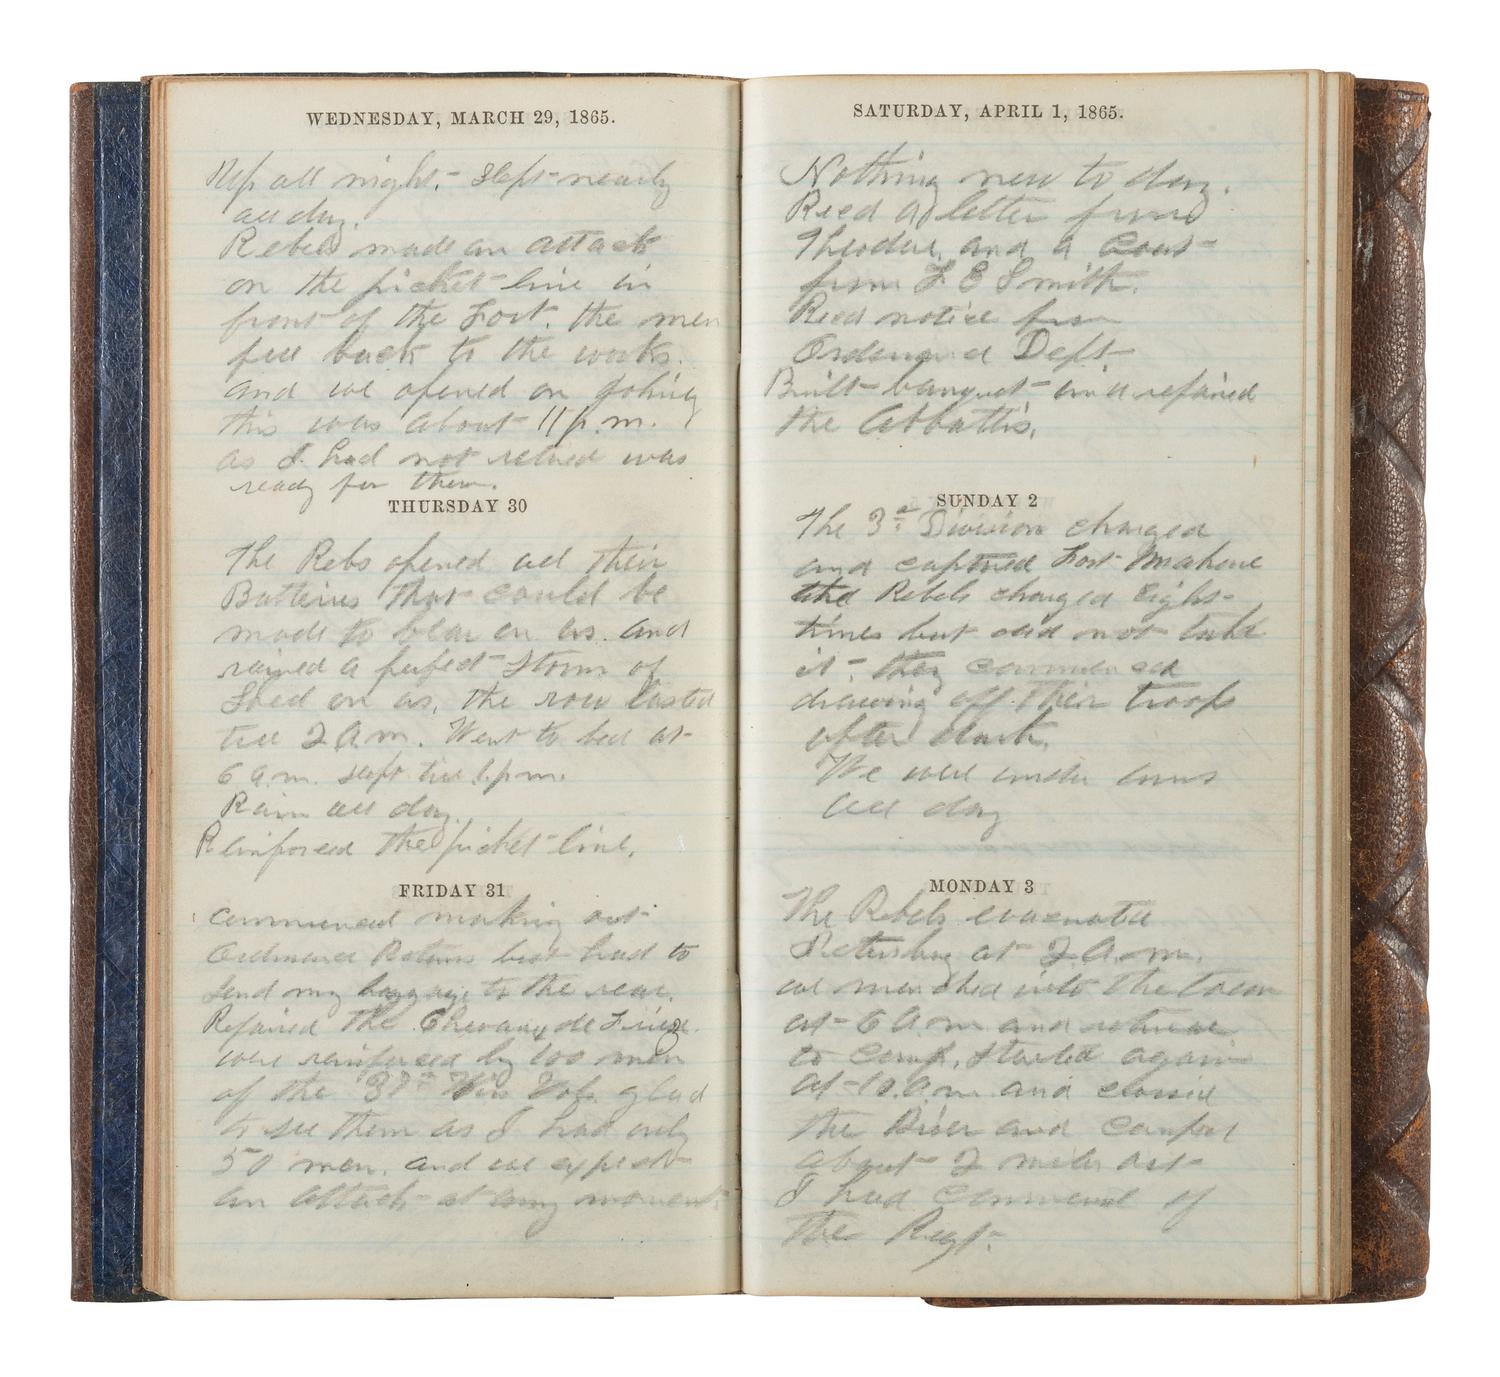 WEDNESDAY, MARCH 29, 1865.
Up all night. Slept nearly
all day.
Rebels made an attack
on the picket line in
front of the Fort. the men
fell back to the works.
and we opened on Johnny
this was about 11 p.m.
as I had not retired was
ready for them.
THURSDAY 30
The Rebs opened all their
Batteries that could be
made to bear on us. and
rained a perfect Storm of
Shell on us, the row lasted
till 2 A.m. Went to bed at
6 a.m. slept till 1 p.m.
Rain all day.
Reinforced the picket line.
FRIDAY 31
Commenced making out
Ordnance Returns but had to
Send my baggage to the rear.
Repaired the Chevaux de Frieze
were reinforced by 100 men
of the 37th Wis Vols. glad
to see them as I had only
50 men. and we expect
an attack at any moment.
SATURDAY, APRIL 1, 1865.
Nothing new to day.
Recd a letter from
Theodore, and a Coat
from F E Smith.
Recd notice from
Ordenance Dept
Built banquet and repaired
the Abbattis.
SUNDAY 2
The 3d Division charged
and captured Fort Mahone
the Rebels charged Eight
times but did not take
it - they commenced
drawing off their troops
after dark.
We were under arms
all day
MONDAY 3
The Rebels evacuated
Petersburg at 2 A.m.
we marched into the town
at 6 A m and
to camp, Started again
at 10 a.m. and crossed
the River and camped
about 2 miles out
I had command of
the Regt.